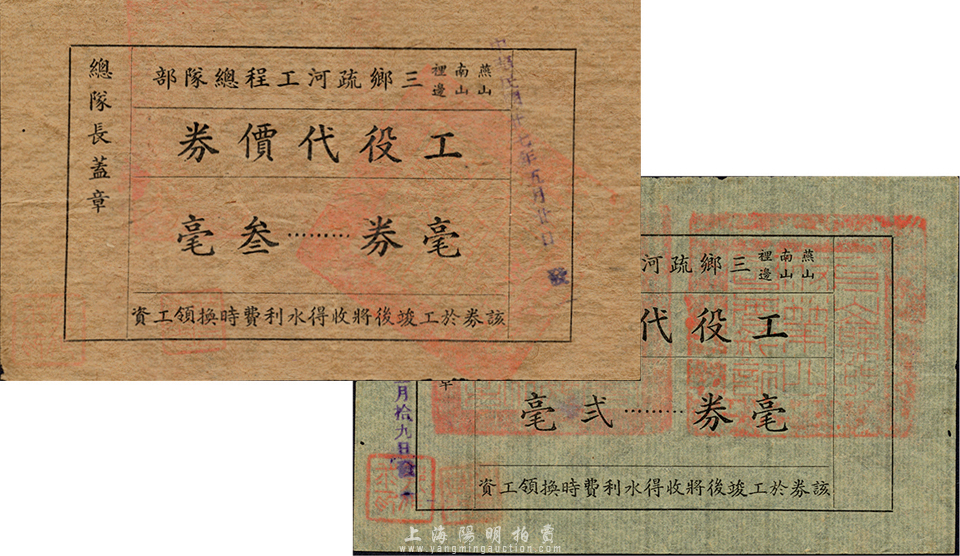 燕山
南山
裡邊
三鄉疏河工程總隊部
工役代價券
毫券………叁毫
該券於工竣後將收得水利費時換領工資
總隊長蓋章
年五月廿日發
燕山
南山
裡邊
三鄉疏河
工役代
毫券………弍毫
該券於工竣後將收得水利費時換領工資
月拾九日發
上海陽明拍賣
www.yangmingauction.com